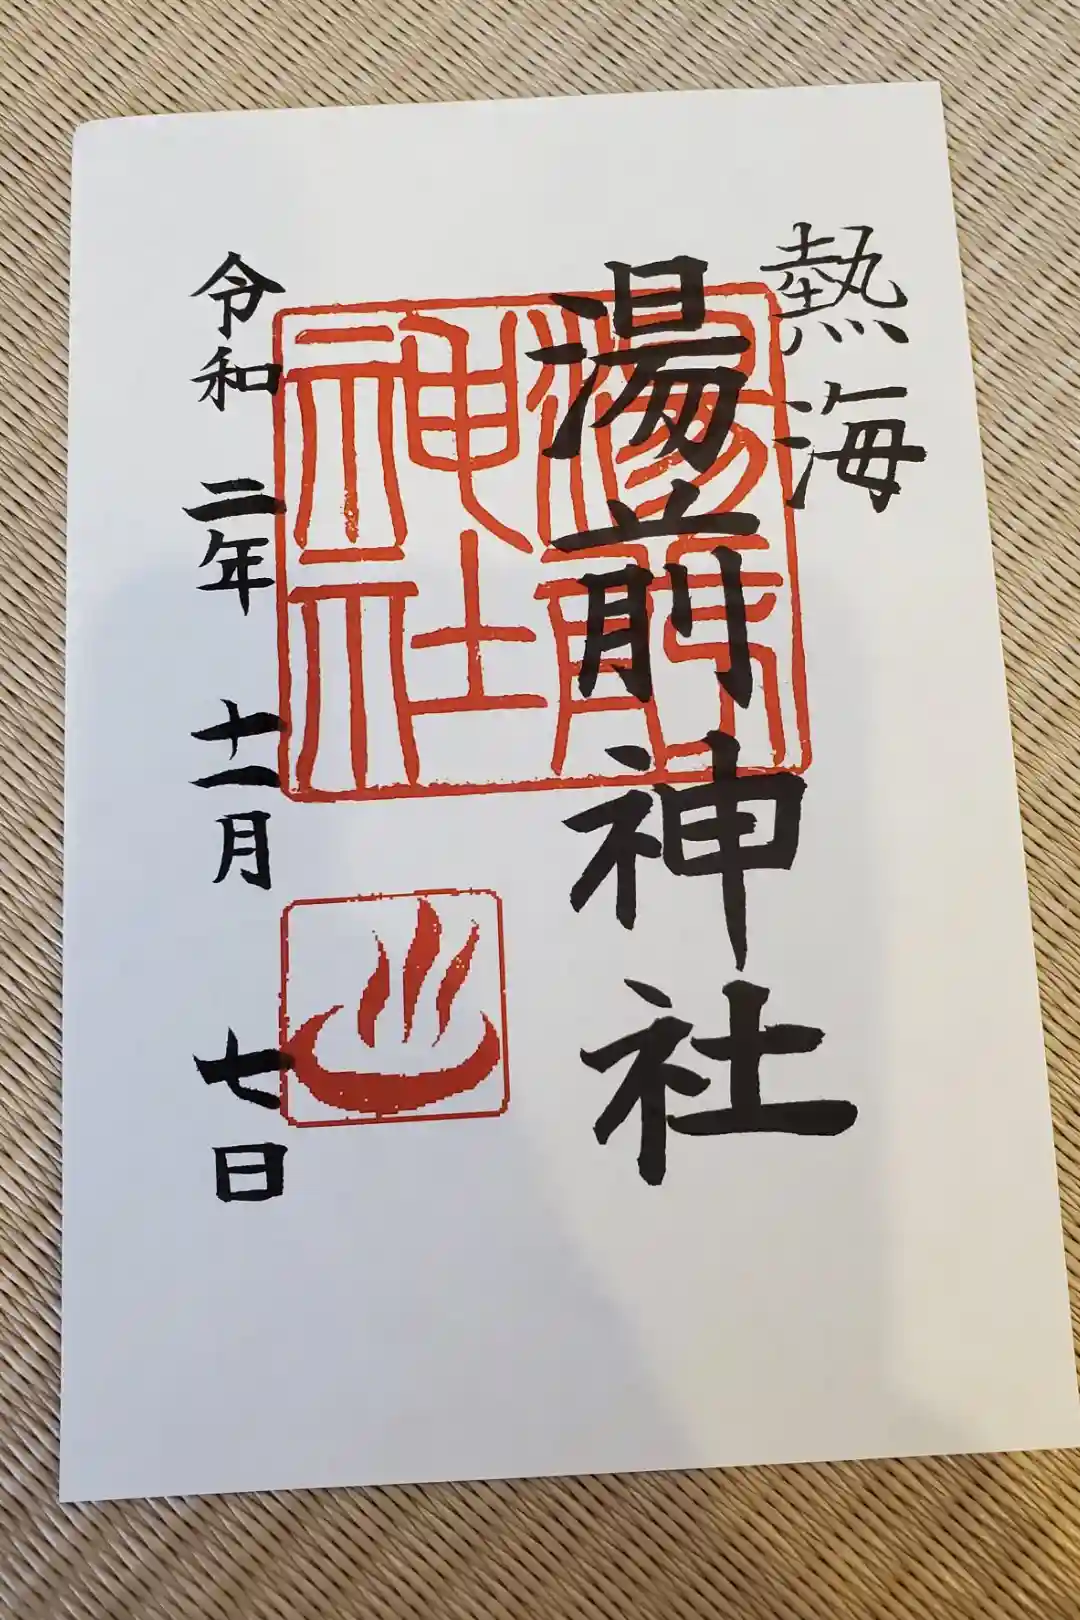 熱海
湯前神社
湯前
神社
令和二年十一月七日